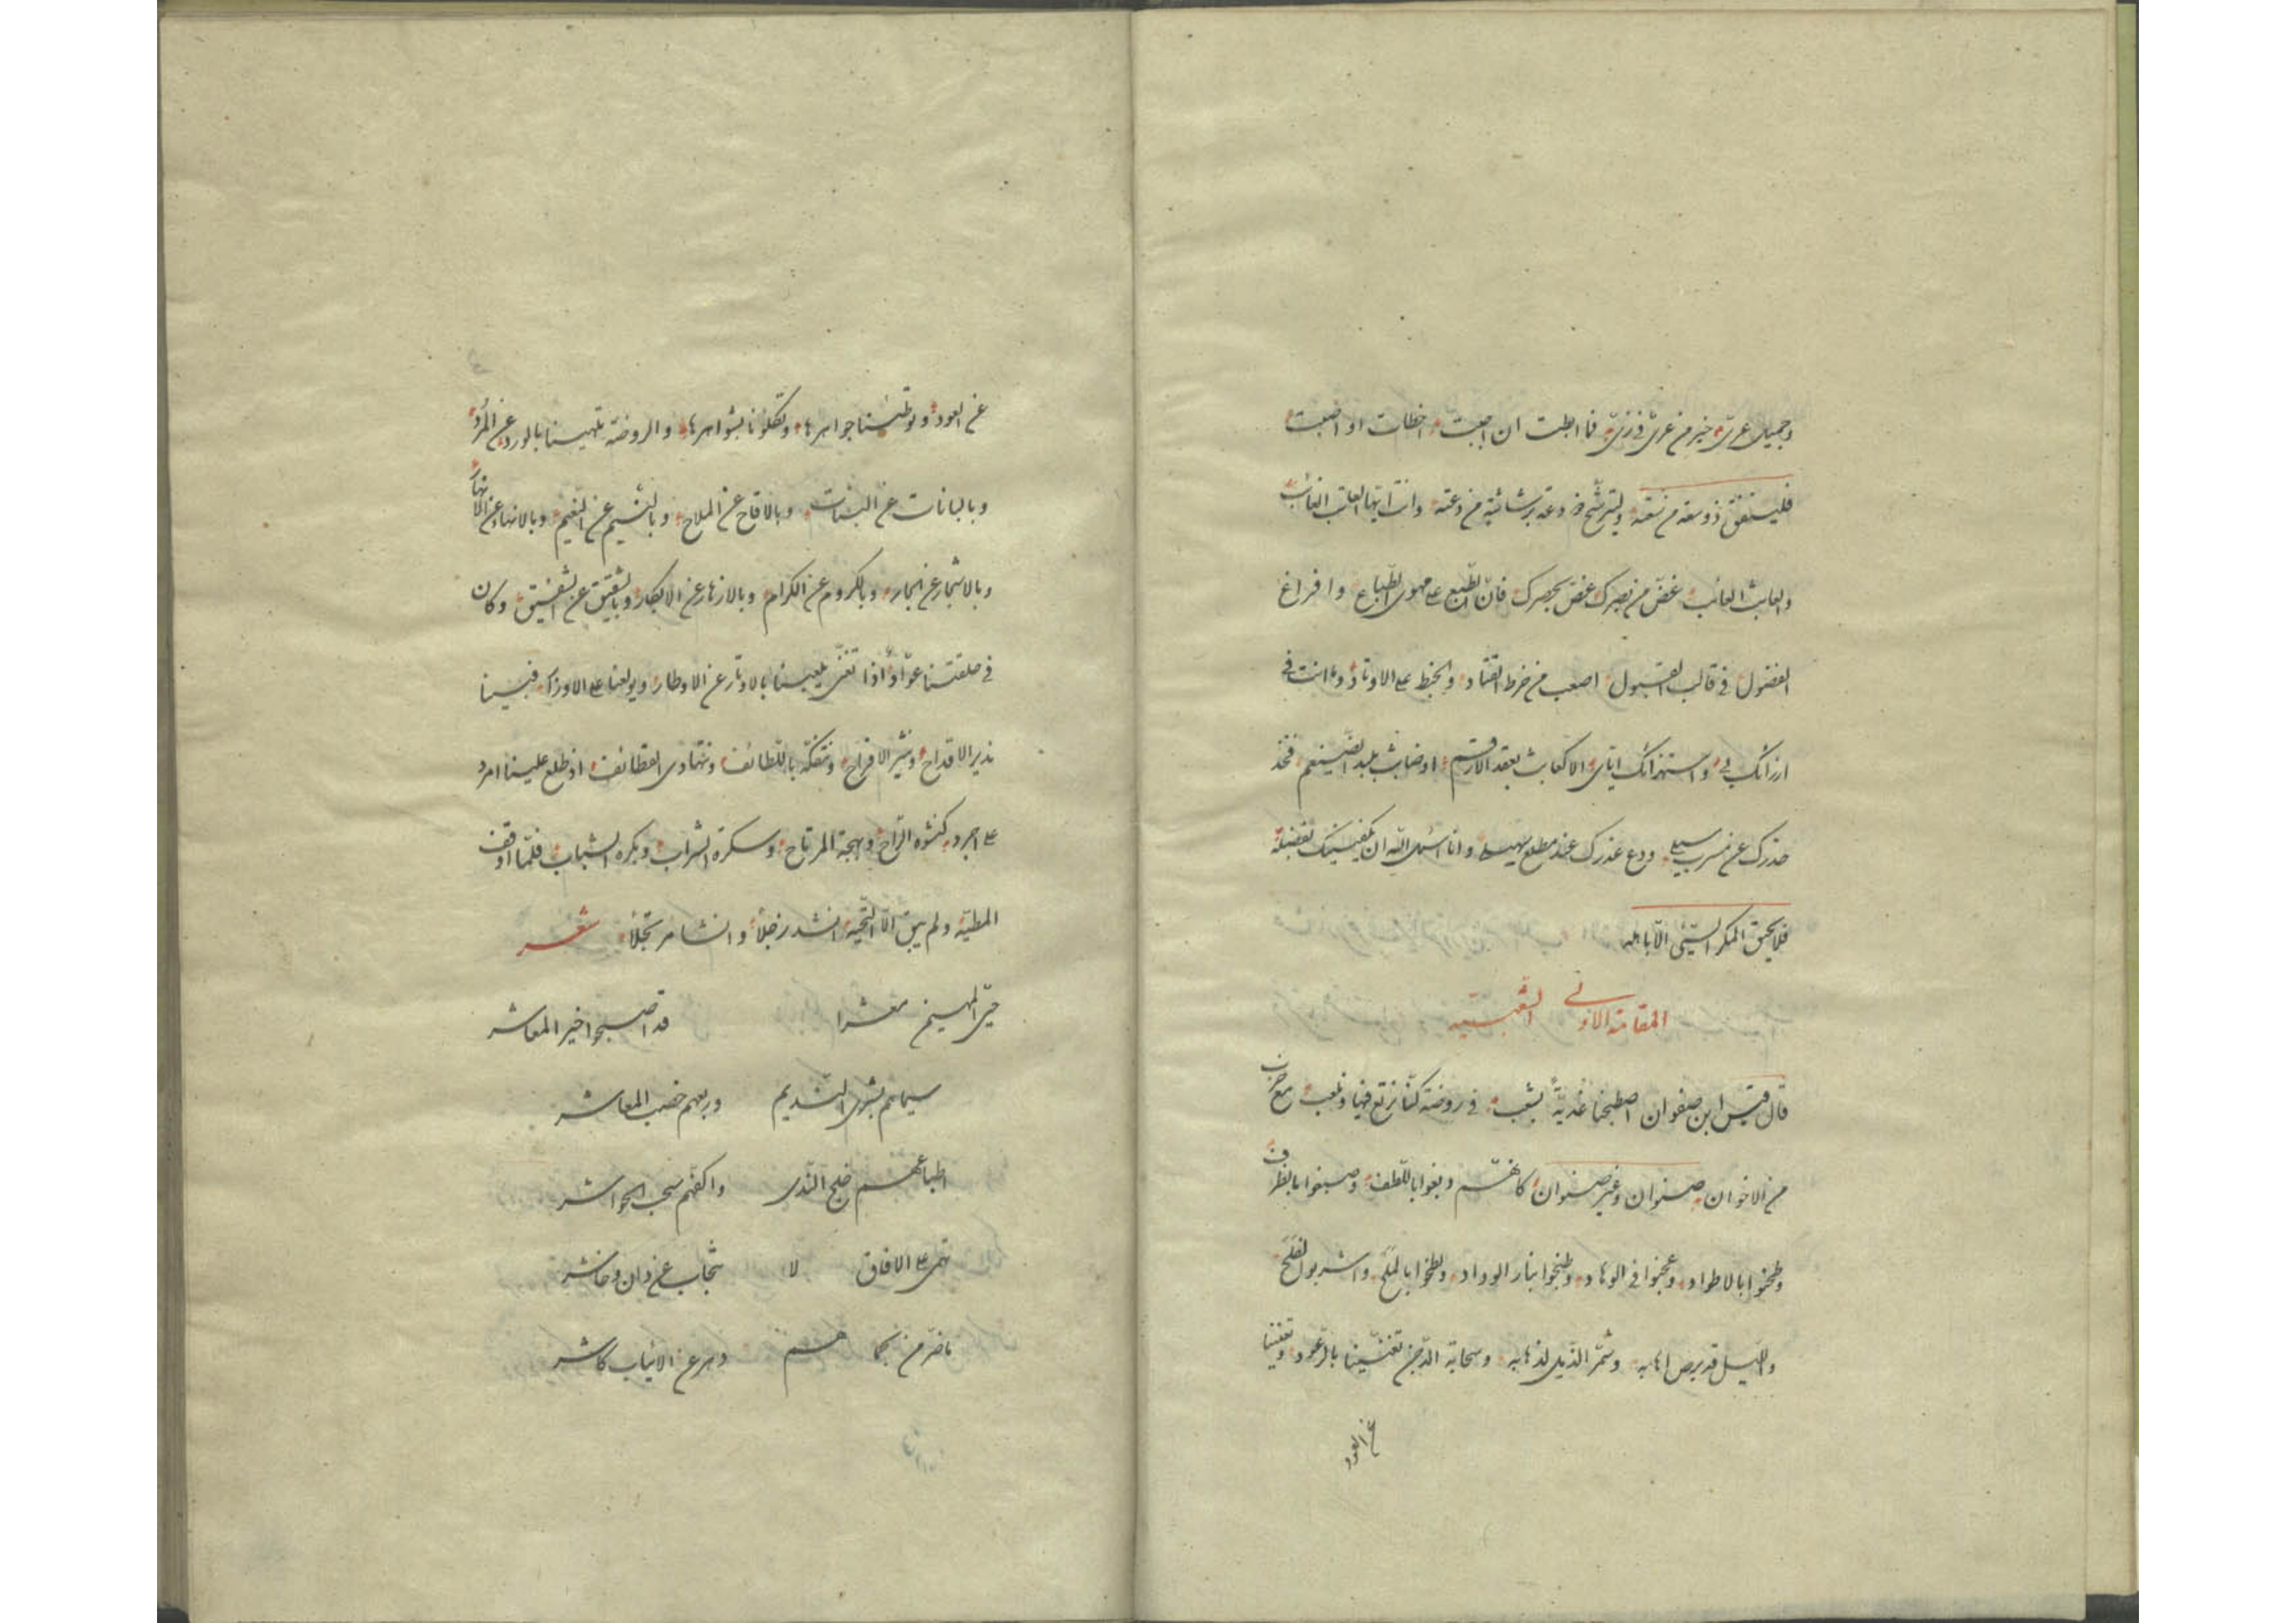 وجميل عرىّ خير من عرىّ فى زىّ فما اطلت ان اجبت اخطات او اصبت
فلينفق ذو سعة من سعته وليترشح ذو دعة برشائته من دعته وانت ايها العاتب الغائب
والعايث العائب غضّ من بصرك غضّ بحصرك فانّ الطبع على مهوى الطباع وافراغ
الفضول فى قالب القبول اصعب من خرط القتاد والخبط على الاوتاد وما انت فى
ازرائك بى واستهزائك اياى الا كعابث بعقد الارقم او ضابث بلبد الضيغم فخذ
حذرك عن مسرب سيلى ودع عذرك عند مطلع سهيلى وانا اسئل الله ان يكفينيك بفضله
فلا يحيق المكر السّيئ الّا باهله
المقامة الاولى الشعبية
قال قيس ابن صفوان اصطبحنا غديّة بشعب فى روضة كنّا نرتع فيها ونلعب مع حزب
من الاخوان صنوان وغير صنوان كانهم دبغوا باللطف وصبغوا بالظرف
وطحنوا بالاطواد وعجنوا فى الوهاد وطبخوا بنار الوداد ولطخوا بالملح واشربوا الفلح
والليل قد برص اهابه وشمّر الذيل لذهابه وسحابة الدجن تغنّينا بالرعود وتغنينا
عن العود
عن العود وتوطئنا جواهرها وتكلؤنا بشواهرها والروضة تلهينا بالورد عن المرد
وبالبانات عن البنات وبالاقاح عن الملاح وبالنسيم عن النعيم وبالانهار عن الانهار
وبالاشجار عن الجار وبالكروم عن الكرام وبالازهار عن الابكار وبالشقيق عن الشفيق وكان
فى حلقتنا عوّاد اذا تغنّى يلهينا بالاوتار عن الاوطار ويولعنا على الاوزار فبينا
ندير الاقداح ونثير الافراح ونتفكّه باللطائف ونتهادى القطائف اذ طلع علينا امرد
على اجرد كنشوة الراح وبهجة المرتاح وسكرة الشراب وبكرة الشباب فلمّا اوقف
المطيّة ولم يبق الّا التحية انشد رجلا وانشا مرتجلا شعر
حىّ المهيمن معشرا قد اصبحوا خير المعاشر
سيماهم بشرى النديم وربعهم خصب المعاشر
اطباعهم خلج الندى واكفهم سحب الحواشر
تهمى على الافاق لا تنجاب عن دان وحاشر
ما ضرّ من نجاهم دهر عن الانياب كاشر